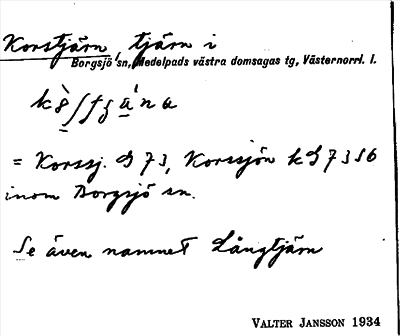 Korstjärn, tjärn i
Borgsjö sn, Medelpads västra domsagas tg, Västernorrl. l.
= Korssj. G 73, Korssjön kG 73 S6
inom Borgsjö sn.
Se även namnet Långtjärn
VALTER JANSSON 1934